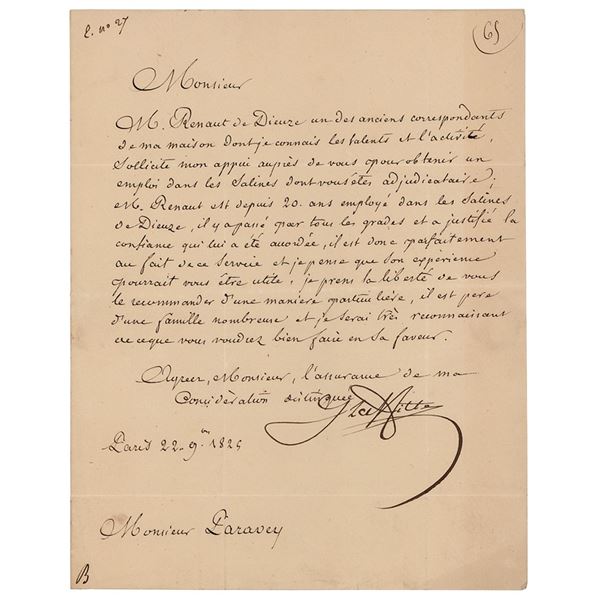 L. nº 27
65
Monsieur
M. Renaut de Dieuze un des anciens correspondants
de ma maison dont je connais les talents et l'activité,
sollicite mon appui auprès de vous pour obtenir un
emploi dans les Salines dont vous êtes adjudicataire;
M. Renaut est depuis 20. ans employé dans les Salines
de Dieuze, il y a passé par tous les grades et a justifié la
confiance qui lui a été accordée, il est donc parfaitement
au fait de ce service et je pense que son expérience
pourrait vous être utile; je prens la liberté de vous
le recommander d'une maniere particulière, il est pere
d'une famille nombreuse et je serai très reconnaissant
de ce que vous voudrez bien faire en sa faveur.
Agreez, Monsieur, l'assurance de ma
Considération distinguée
J Laffitte
Paris 22. 9.bre 1825
Monsieur Paravey
B